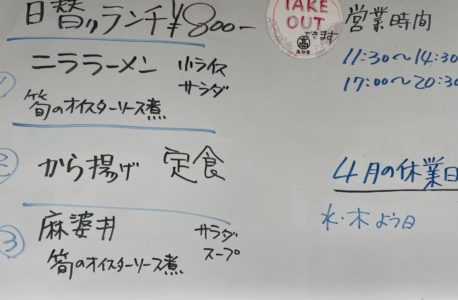 日替りランチ ¥800-
① ニララーメン 小ライス
サラダ
筍のオイスターソース煮
② から揚げ 定食
③ 麻婆丼 サラダ
スープ
筍のオイスターソース煮
TAKE
OUT
できます
営業時間
11:30～14:30
17:00～20:30
4月の休業日
水・木よう日